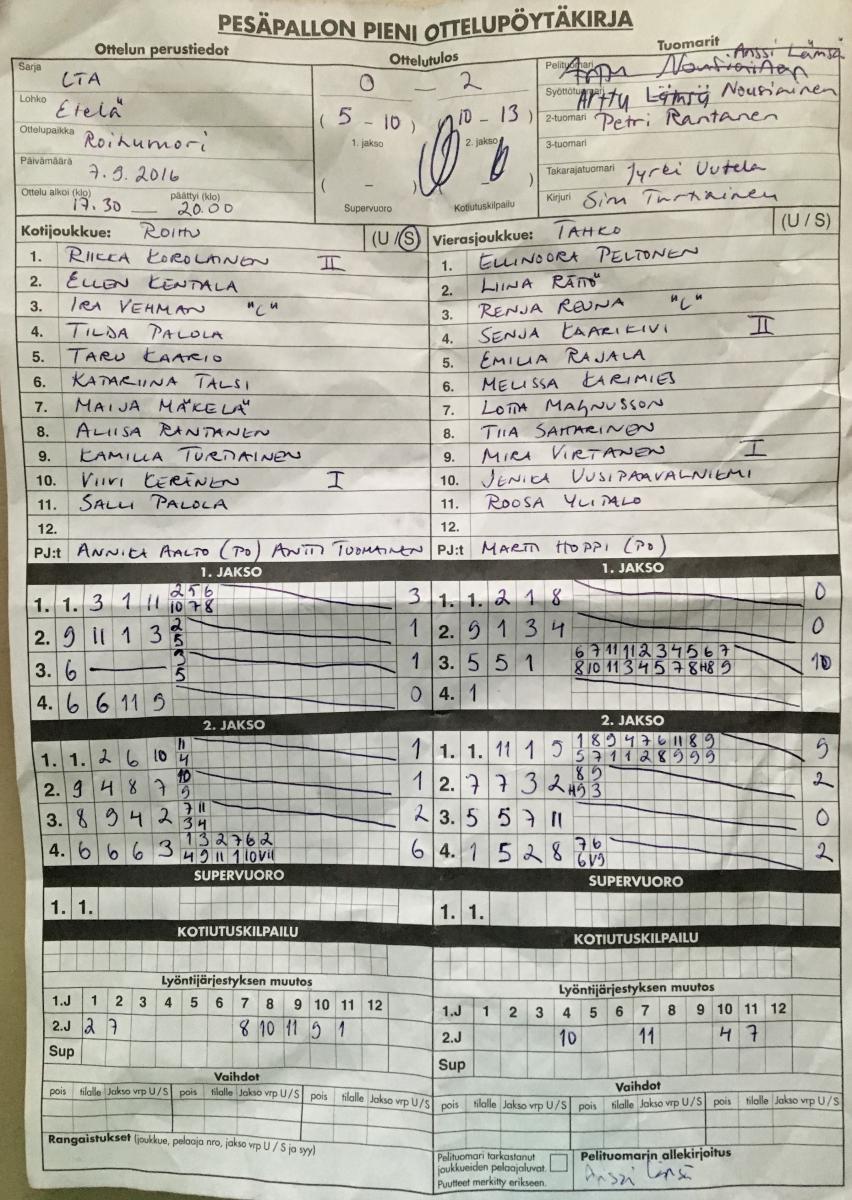 PESÄPALLON PIENI OTTELUPÖYTÄKIRJA
Ottelun perustiedot
Sarja
LTA
Lohko
Etelä
Ottelupaikka
Roihumori
Päivämäärä
7.9.2016
Ottelu alkoi (klo) päättyi (klo)
17.30 — 20.00
Ottelutulos
0 — 2
( 5 - 10 ) ( 10 - 13 )
1. jakso 2. jakso
( - ) ( - )
Supervuoro Kotiutuskilpailu
Tuomarit
Pelituomari Anssi Länsä
Syöttötuomari Arttu Nousiainen
2-tuomari Petri Rantanen
3-tuomari
Takarajatuomari Jyrki Uutela
Kirjuri
Kotijoukkue: ROIHU (U / S)
1. RIIKKA KOROLAINEN II
2. ELLEN KENTALA
3. IRA VEHMAN "C"
4. TILDA PALOLA
5. TARU KAARIO
6. KATARIINA TALSI
7. MAIJA MÄKELÄ
8. ALIISA RANTANEN
9. KAMILLA TURTIAINEN
10. VIIVI KERÄNEN I
11. SALLI PALOLA
12.
PJ:t ANNIKA AALTO (PO) ANTTI TUOMAINEN
Vierasjoukkue: TAHKO (U / S)
1. ELLINOORA PELTONEN
2. LIINA RÄTTÖ
3. RENJA REUNA "C"
4. SENJA KAARIKIVI II
5. EMILIA RAJALA
6. MELISSA KARIMIES
7. LOTTA MAGNUSSON
8. TIIA SAHARINEN
9. MIRA VIRTANEN I
10. JENIKA UUSIPAAVALNIEMI
11. ROOSA YLITALO
12.
PJ:t MARTTI HOPPI (PO)
1. JAKSO
1. 1. 3 1 11 2 5 6 3
10 7 8
2. 9 11 1 3 2 1
5
3. 6 — 3 1
5
4. 6 6 11 9 0
2. JAKSO
1. 1. 2 6 10 11 1
4
2. 9 4 8 7 10 1
9
3. 8 9 4 2 7 11 2
3 4
4. 6 6 6 3 1 3 2 7 6 2 6
4 9 11 1 10 VII
SUPERVUORO
1. 1.
KOTIUTUSKILPAILU
Lyöntijärjestyksen muutos
1.J 1 2 3 4 5 6 7 8 9 10 11 12
2.J 2 7 8 10 11 9 1
Sup
Vaihdot
pois tilalle Jakso vrp U / S pois tilalle Jakso vrp U / S pois tilalle Jakso vrp U / S
Rangaistukset (joukkue, pelaaja nro, jakso vrp U / S ja syy)
1. JAKSO
1. 1. 2 1 8 0
2. 9 1 3 4 0
3. 5 5 1 6 7 11 11 2 3 4 5 6 7 10
8 10 11 3 4 5 7 8 H8 9
4. 1
2. JAKSO
1. 1. 11 1 9 1 8 9 4 7 6 11 8 9 9
5 7 1 1 2 8 9 9 9
2. 7 7 3 2 8 9 2
H9 3
3. 5 5 7 11 0
4. 1 5 2 8 7 6 2
6 V9
SUPERVUORO
1. 1.
KOTIUTUSKILPAILU
Lyöntijärjestyksen muutos
1.J 1 2 3 4 5 6 7 8 9 10 11 12
2.J 10 11 4 7
Sup
Vaihdot
pois tilalle Jakso vrp U / S pois tilalle Jakso vrp U / S pois tilalle Jakso vrp U / S
Pelituomari tarkastanut
joukkueiden pelaajaluvat.
Puutteet merkitty erikseen.
Pelituomarin allekirjoitus
Anssi Länsä